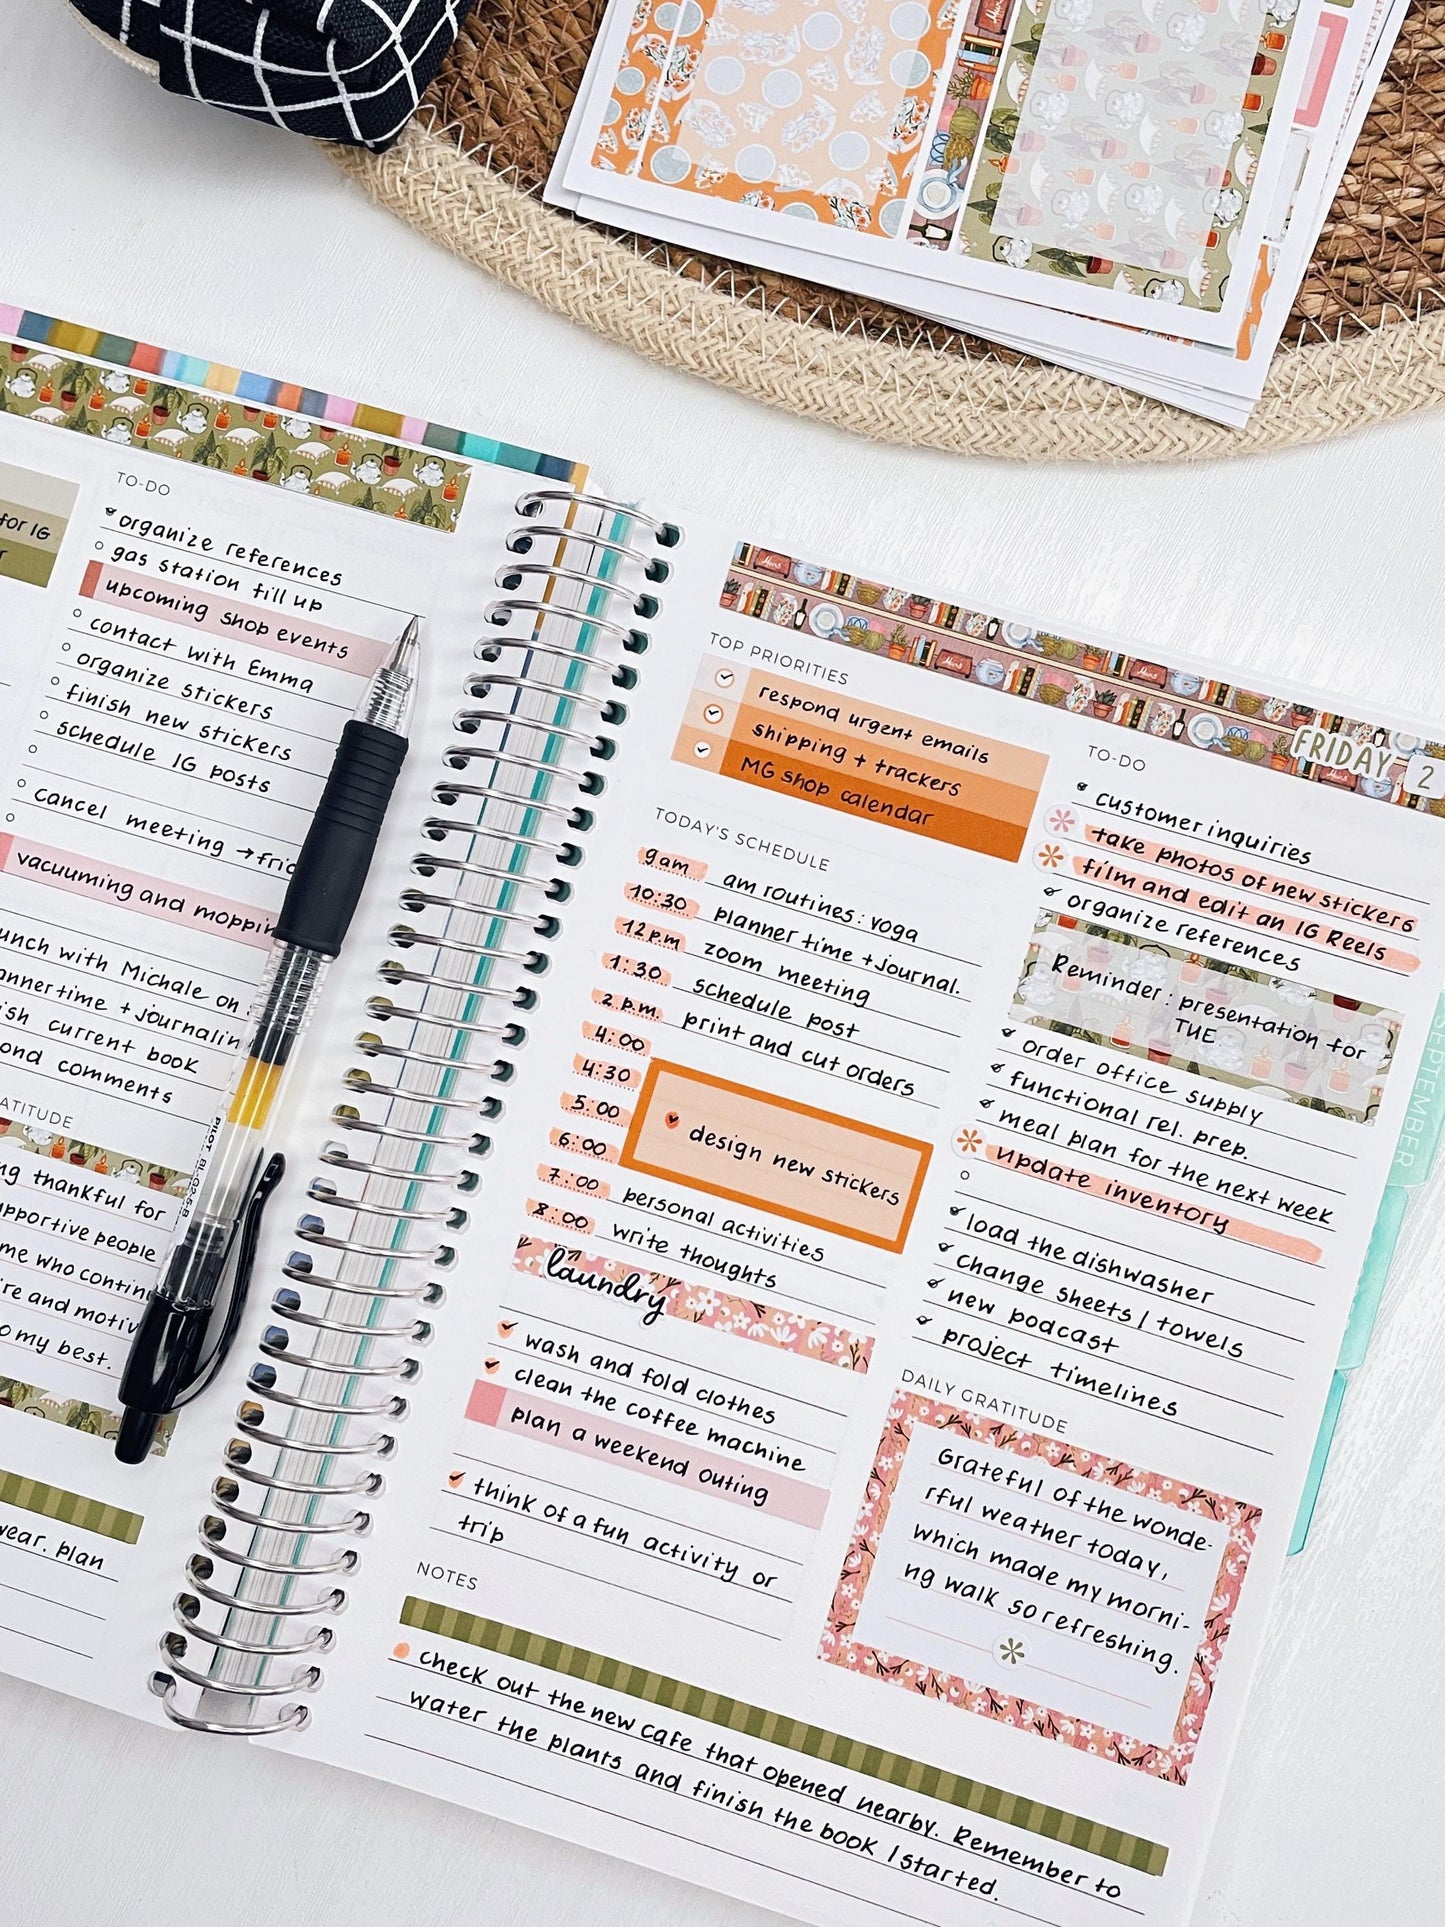 for IG
TO-DO
organize references
gas station fill up
upcoming shop events
contact with Emma
organize stickers
finish new stickers
schedule IG posts
cancel meeting → frid
vacuuming and moppin
unch with Michale on
annertime + journalin
ish current book
ond comments
ATITUDE
ng thankful for
upportive people
me who contin
ire and motiv
o my best.
wear. plan
PILOT BL-G2-5-B
TOP PRIORITIES
respond urgent emails
shipping + trackers
MG shop calendar
TODAY'S SCHEDULE
9am am routines: yoga
10:30 planner time + journal.
12 p.m zoom meeting
1:30 schedule post
2 p.m. print and cut orders
4:00
4:30
5:00 design new stickers
6:00
7:00 personal activities
8:00 write thoughts
laundry
wash and fold clothes
clean the coffee machine
plan a weekend outing
think of a fun activity or
trip
FRIDAY 2
TO-DO
customer inquiries
take photos of new stickers
film and edit an IG Reels
organize references
Reminder: presentation for
TUE
order office supply
functional rel. prep.
meal plan for the next week
update inventory
load the dishwasher
change sheets / towels
new podcast
project timelines
DAILY GRATITUDE
Grateful of the wonde-
rful weather today,
which made my morni-
ng walk so refreshing.
NOTES
check out the new cafe that opened nearby. Remember to
water the plants and finish the book I started.
SEPTEMBER